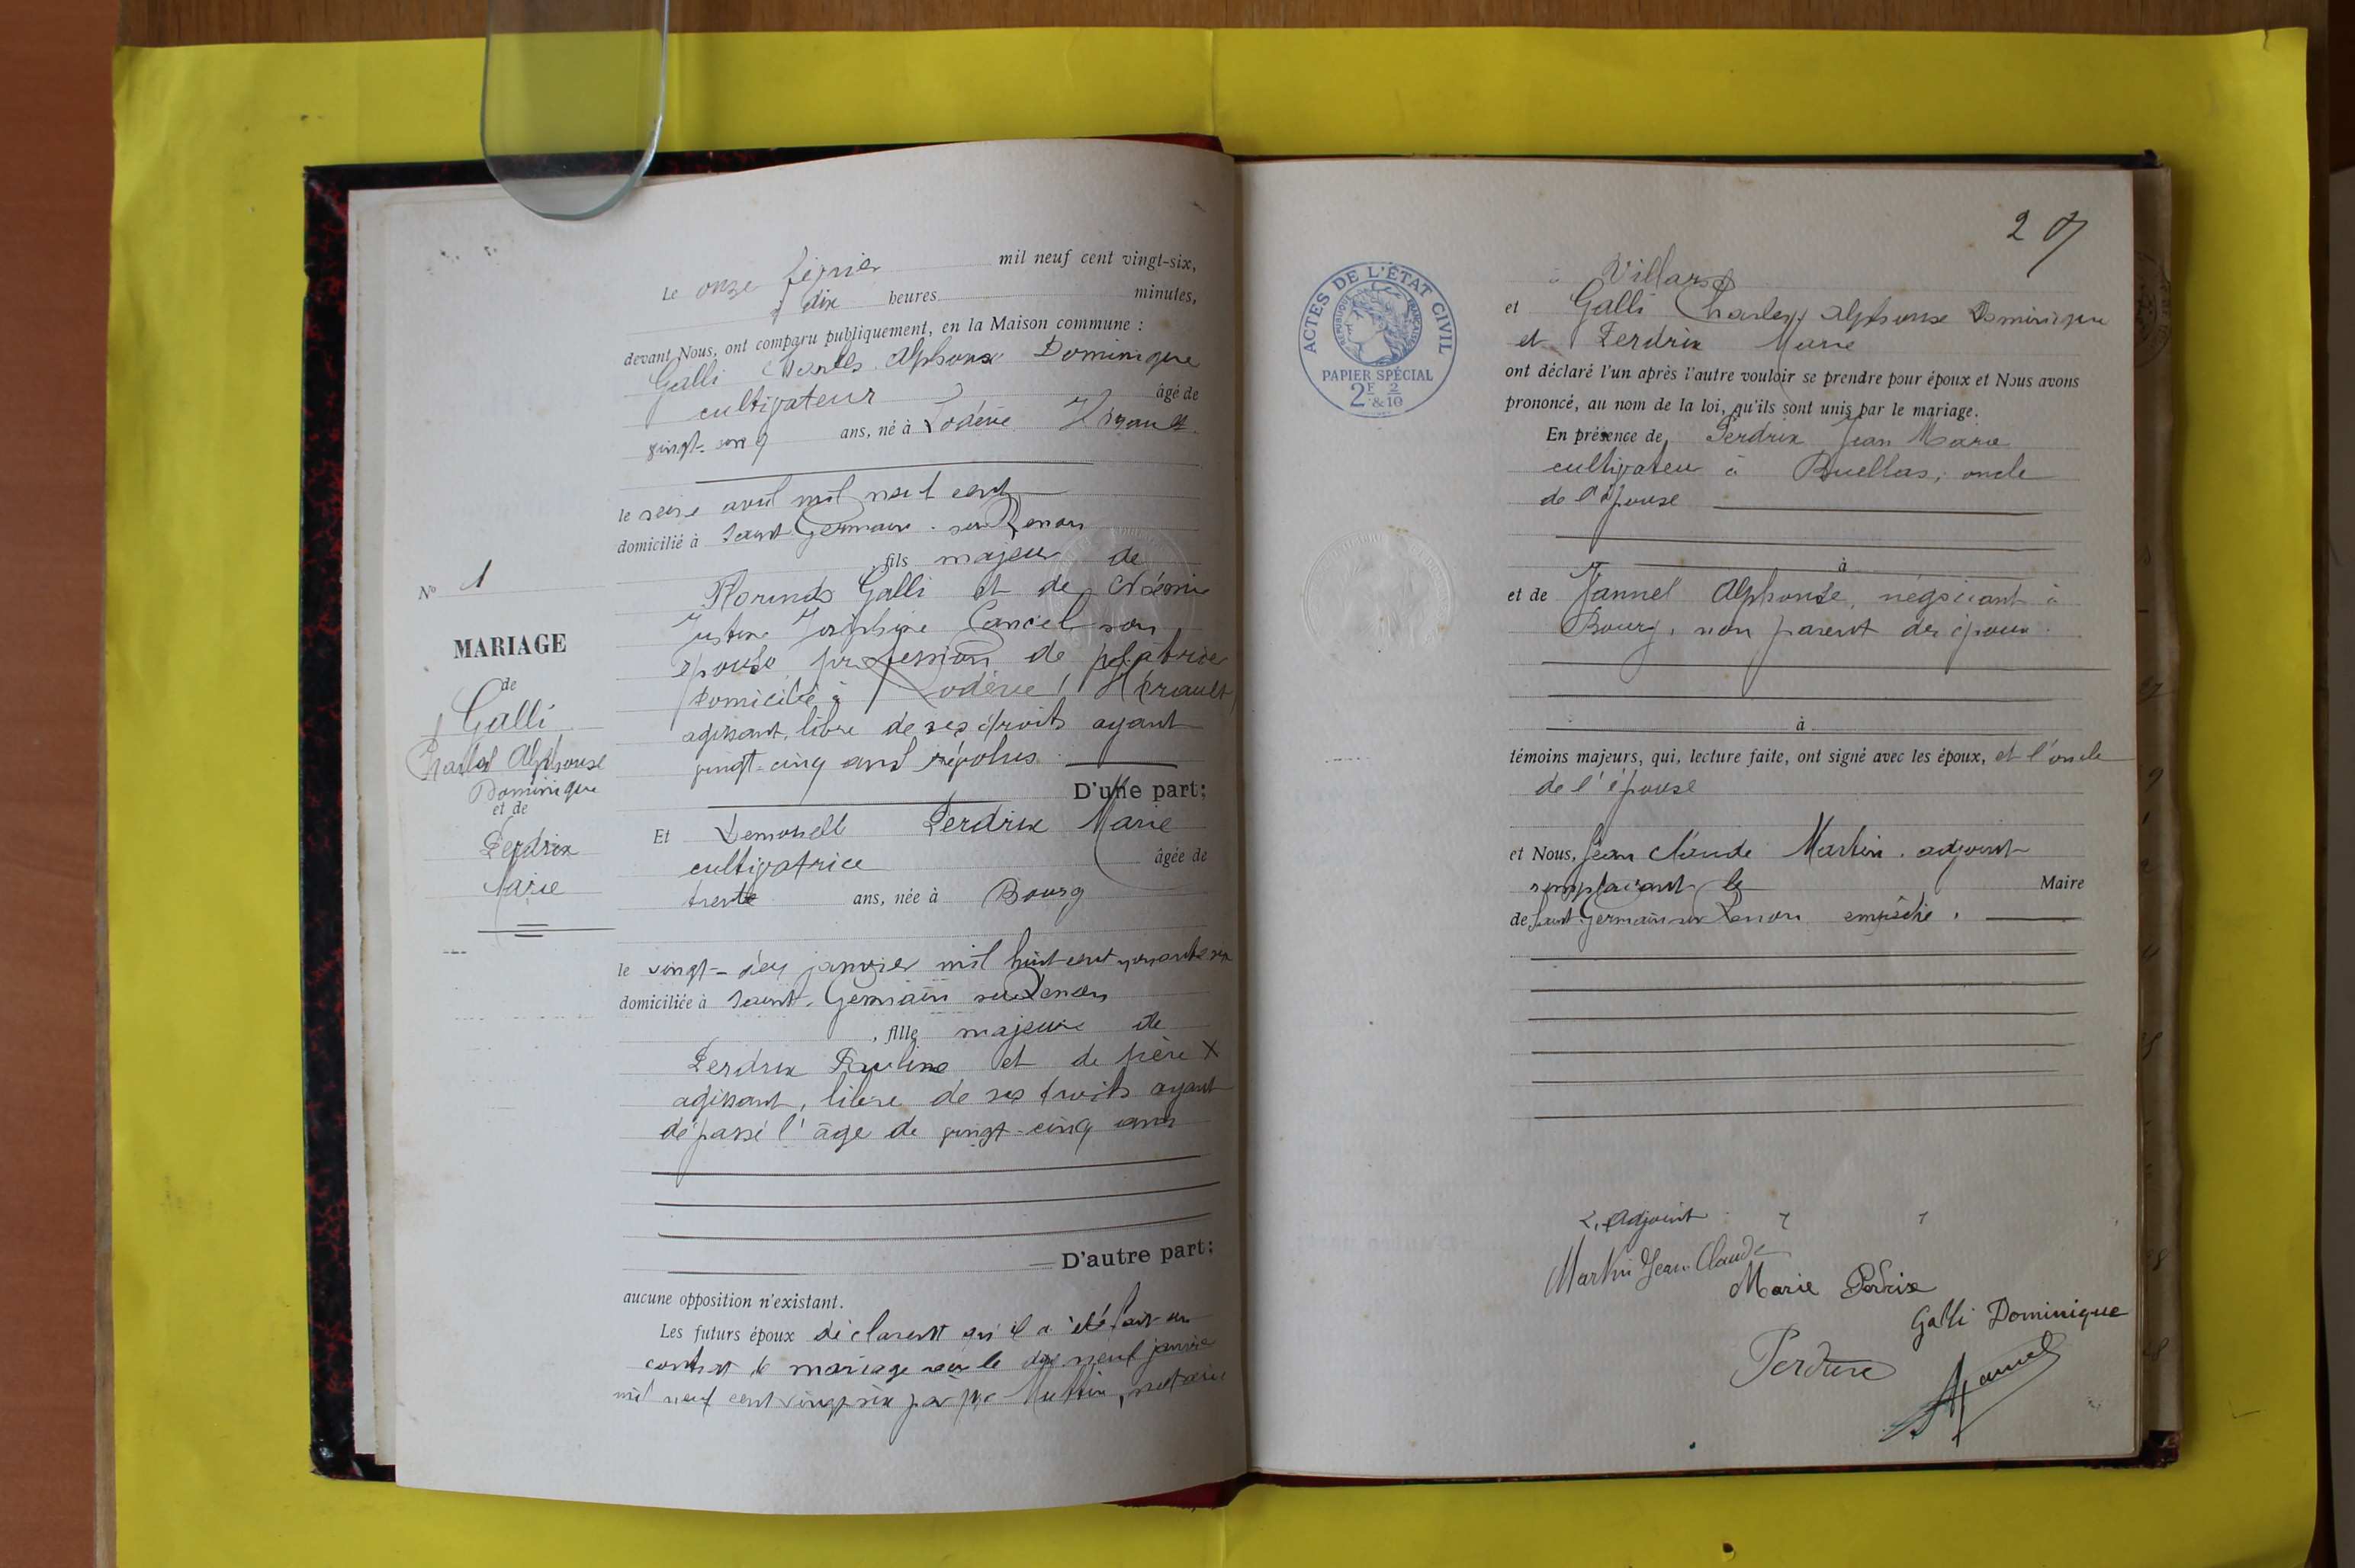 Le onze février mil neuf cent vingt-six,
à dix heures minutes,
devant Nous, ont comparu publiquement, en la Maison commune :
Galli Charles Alphonse Dominique
cultivateur âgé de
vingt-cinq ans, né à Lodève Hérault
le seize avril mil neuf cent
domicilié à Saint-Germain-sur-Renon
, fils majeur de
Galli et de Noémie
Justine Joséphine Cancel son
épouse, profession de
domicilié à Lodève, Hérault,
agissant, libre de ses droits ayant
vingt-cinq ans révolus.
D'une part;
Nº 1
MARIAGE
de
Galli
Charles Alphonse
Dominique
et de
Perdrix
Marie
Et Demoiselle Perdrix Marie
cultivatrice âgée de
trente ans, née à Bourg
le janvier mil huit-cent
domiciliée à Saint-Germain sur Renon
, fille majeure de
Perdrix Pauline et de père X
agissant, libre de ses droits ayant
dépassé l'âge de vingt-cinq ans
D'autre part;
aucune opposition n'existant.
Les futurs époux déclarent qu'il a été fait un
contrat de mariage reçu le dix neuf janvier
mil neuf cent vingt six par Me notaire
27
ACTES DE L'ÉTAT CIVIL
RÉPUBLIQUE FRANÇAISE
PAPIER SPÉCIAL
2F & 2/10
à Villars
et Galli Charles Alphonse Dominique
et Perdrix Marie
ont déclaré l'un après l'autre vouloir se prendre pour époux et Nous avons
prononcé, au nom de la loi, qu'ils sont unis par le mariage.
En présence de Perdrix Jean Marie
cultivateur à Buellas, oncle
de l'épouse
à
et de Jannel Alphonse, négociant à
Bourg, non parent des époux.
à
témoins majeurs, qui, lecture faite, ont signé avec les époux, et l'oncle
de l'épouse
et Nous, Jean Claude Martin, adjoint
remplaçant le Maire
de Saint-Germain sur Renon empêché.
L'Adjoint
Martin Jean Claude
Marie Perdrix
Galli Dominique
Perdrix
AJannel